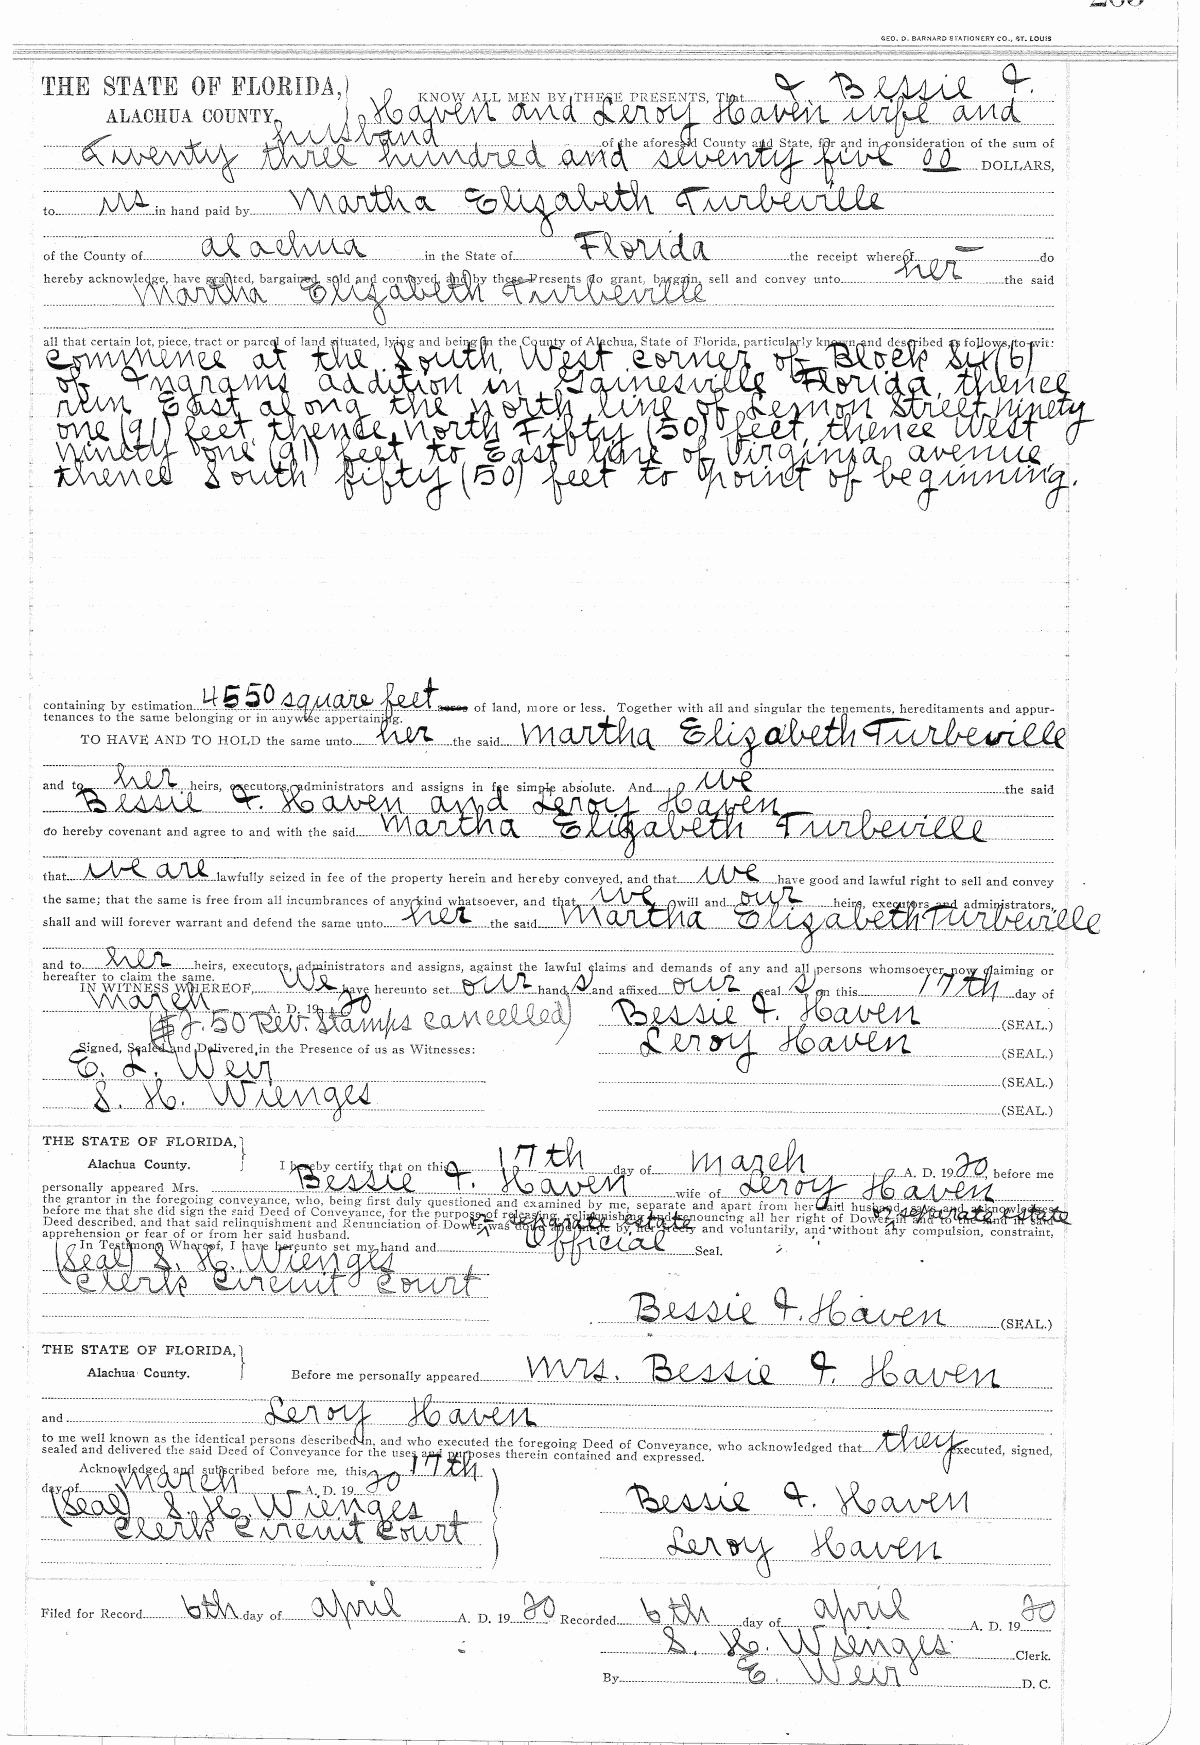 GEO. D. BARNARD STATIONERY CO., ST. LOUIS
THE STATE OF FLORIDA,
ALACHUA COUNTY. KNOW ALL MEN BY THESE PRESENTS, That I Bessie I.
Haven and Leroy Haven wife and
husband of the aforesaid County and State, for and in consideration of the sum of
Twenty three hundred and seventy five 00 DOLLARS,
to us in hand paid by Martha Elizabeth Turbeville
of the County of Alachua in the State of Florida the receipt whereof do
hereby acknowledge, have granted, bargained, sold and conveyed, and by these Presents do grant, bargain, sell and convey unto her the said
Martha Elizabeth Turbeville
all that certain lot, piece, tract or parcel of land situated, lying and being in the County of Alachua, State of Florida, particularly known and described as follows, to-wit:
Commence at the South West corner of Block Six (6)
of Ingrams addition in Gainesville Florida, thence
run East along the north line of Lemon Street ninety
one (91) feet, thence north Fifty (50) feet, thence West
ninety one (91) feet to East line of Virginia avenue,
thence South fifty (50) feet to point of beginning.
containing by estimation 4550 square feet acres of land, more or less. Together with all and singular the tenements, hereditaments and appur-
tenances to the same belonging or in anywise appertaining.
TO HAVE AND TO HOLD the same unto her the said Martha Elizabeth Turbeville
and to her heirs, executors, administrators and assigns in fee simple absolute. And we the said
Bessie I. Haven and Leroy Haven
do hereby covenant and agree to and with the said Martha Elizabeth Turbeville
that we are lawfully seized in fee of the property herein and hereby conveyed, and that we have good and lawful right to sell and convey
the same; that the same is free from all incumbrances of any kind whatsoever, and that we will and our heirs, executors and administrators,
shall and will forever warrant and defend the same unto her the said Martha Elizabeth Turbeville
and to her heirs, executors, administrators and assigns, against the lawful claims and demands of any and all persons whomsoever now claiming or
hereafter to claim the same.
IN WITNESS WHEREOF, We have hereunto set our hand s and affixed our seal s on this 17th day of
March A. D. 19 20
.50 Rev. Stamps cancelled) Bessie I. Haven (SEAL.)
Signed, Sealed and Delivered in the Presence of us as Witnesses: Leroy Haven (SEAL.)
E. L. Weir (SEAL.)
S. H. Wienges (SEAL.)
THE STATE OF FLORIDA,
Alachua County. I hereby certify that on this 17th day of March A. D. 19 20 before me
personally appeared Mrs. Bessie I. Haven wife of Leroy Haven
the grantor in the foregoing conveyance, who, being first duly questioned and examined by me, separate and apart from her said husband, says and acknowledges
before me that she did sign the said Deed of Conveyance, for the purpose of releasing, relinquishing and renouncing all her right of Dower in and to the land in said or separate estate
Deed described, and that said relinquishment and Renunciation of Dower or separate estate was done and made by her freely and voluntarily, and without any compulsion, constraint,
apprehension or fear of or from her said husband.
In Testimony Whereof, I have hereunto set my hand and Official Seal.
(Seal) S. H. Wienges
Clerk Circuit Court
Bessie I. Haven (SEAL.)
THE STATE OF FLORIDA,
Alachua County. Before me personally appeared Mrs. Bessie I. Haven
and Leroy Haven
to me well known as the identical persons described in, and who executed the foregoing Deed of Conveyance, who acknowledged that they executed, signed,
sealed and delivered the said Deed of Conveyance for the uses and purposes therein contained and expressed.
Acknowledged and subscribed before me, this 17th
day of March A. D. 19 20
(Seal) S. H. Wienges Bessie I. Haven
Clerk Circuit Court Leroy Haven
Filed for Record 6th day of April A. D. 19 20 Recorded 6th day of April A. D. 19 20
S. H. Wienges Clerk.
By E. Weir D. C.